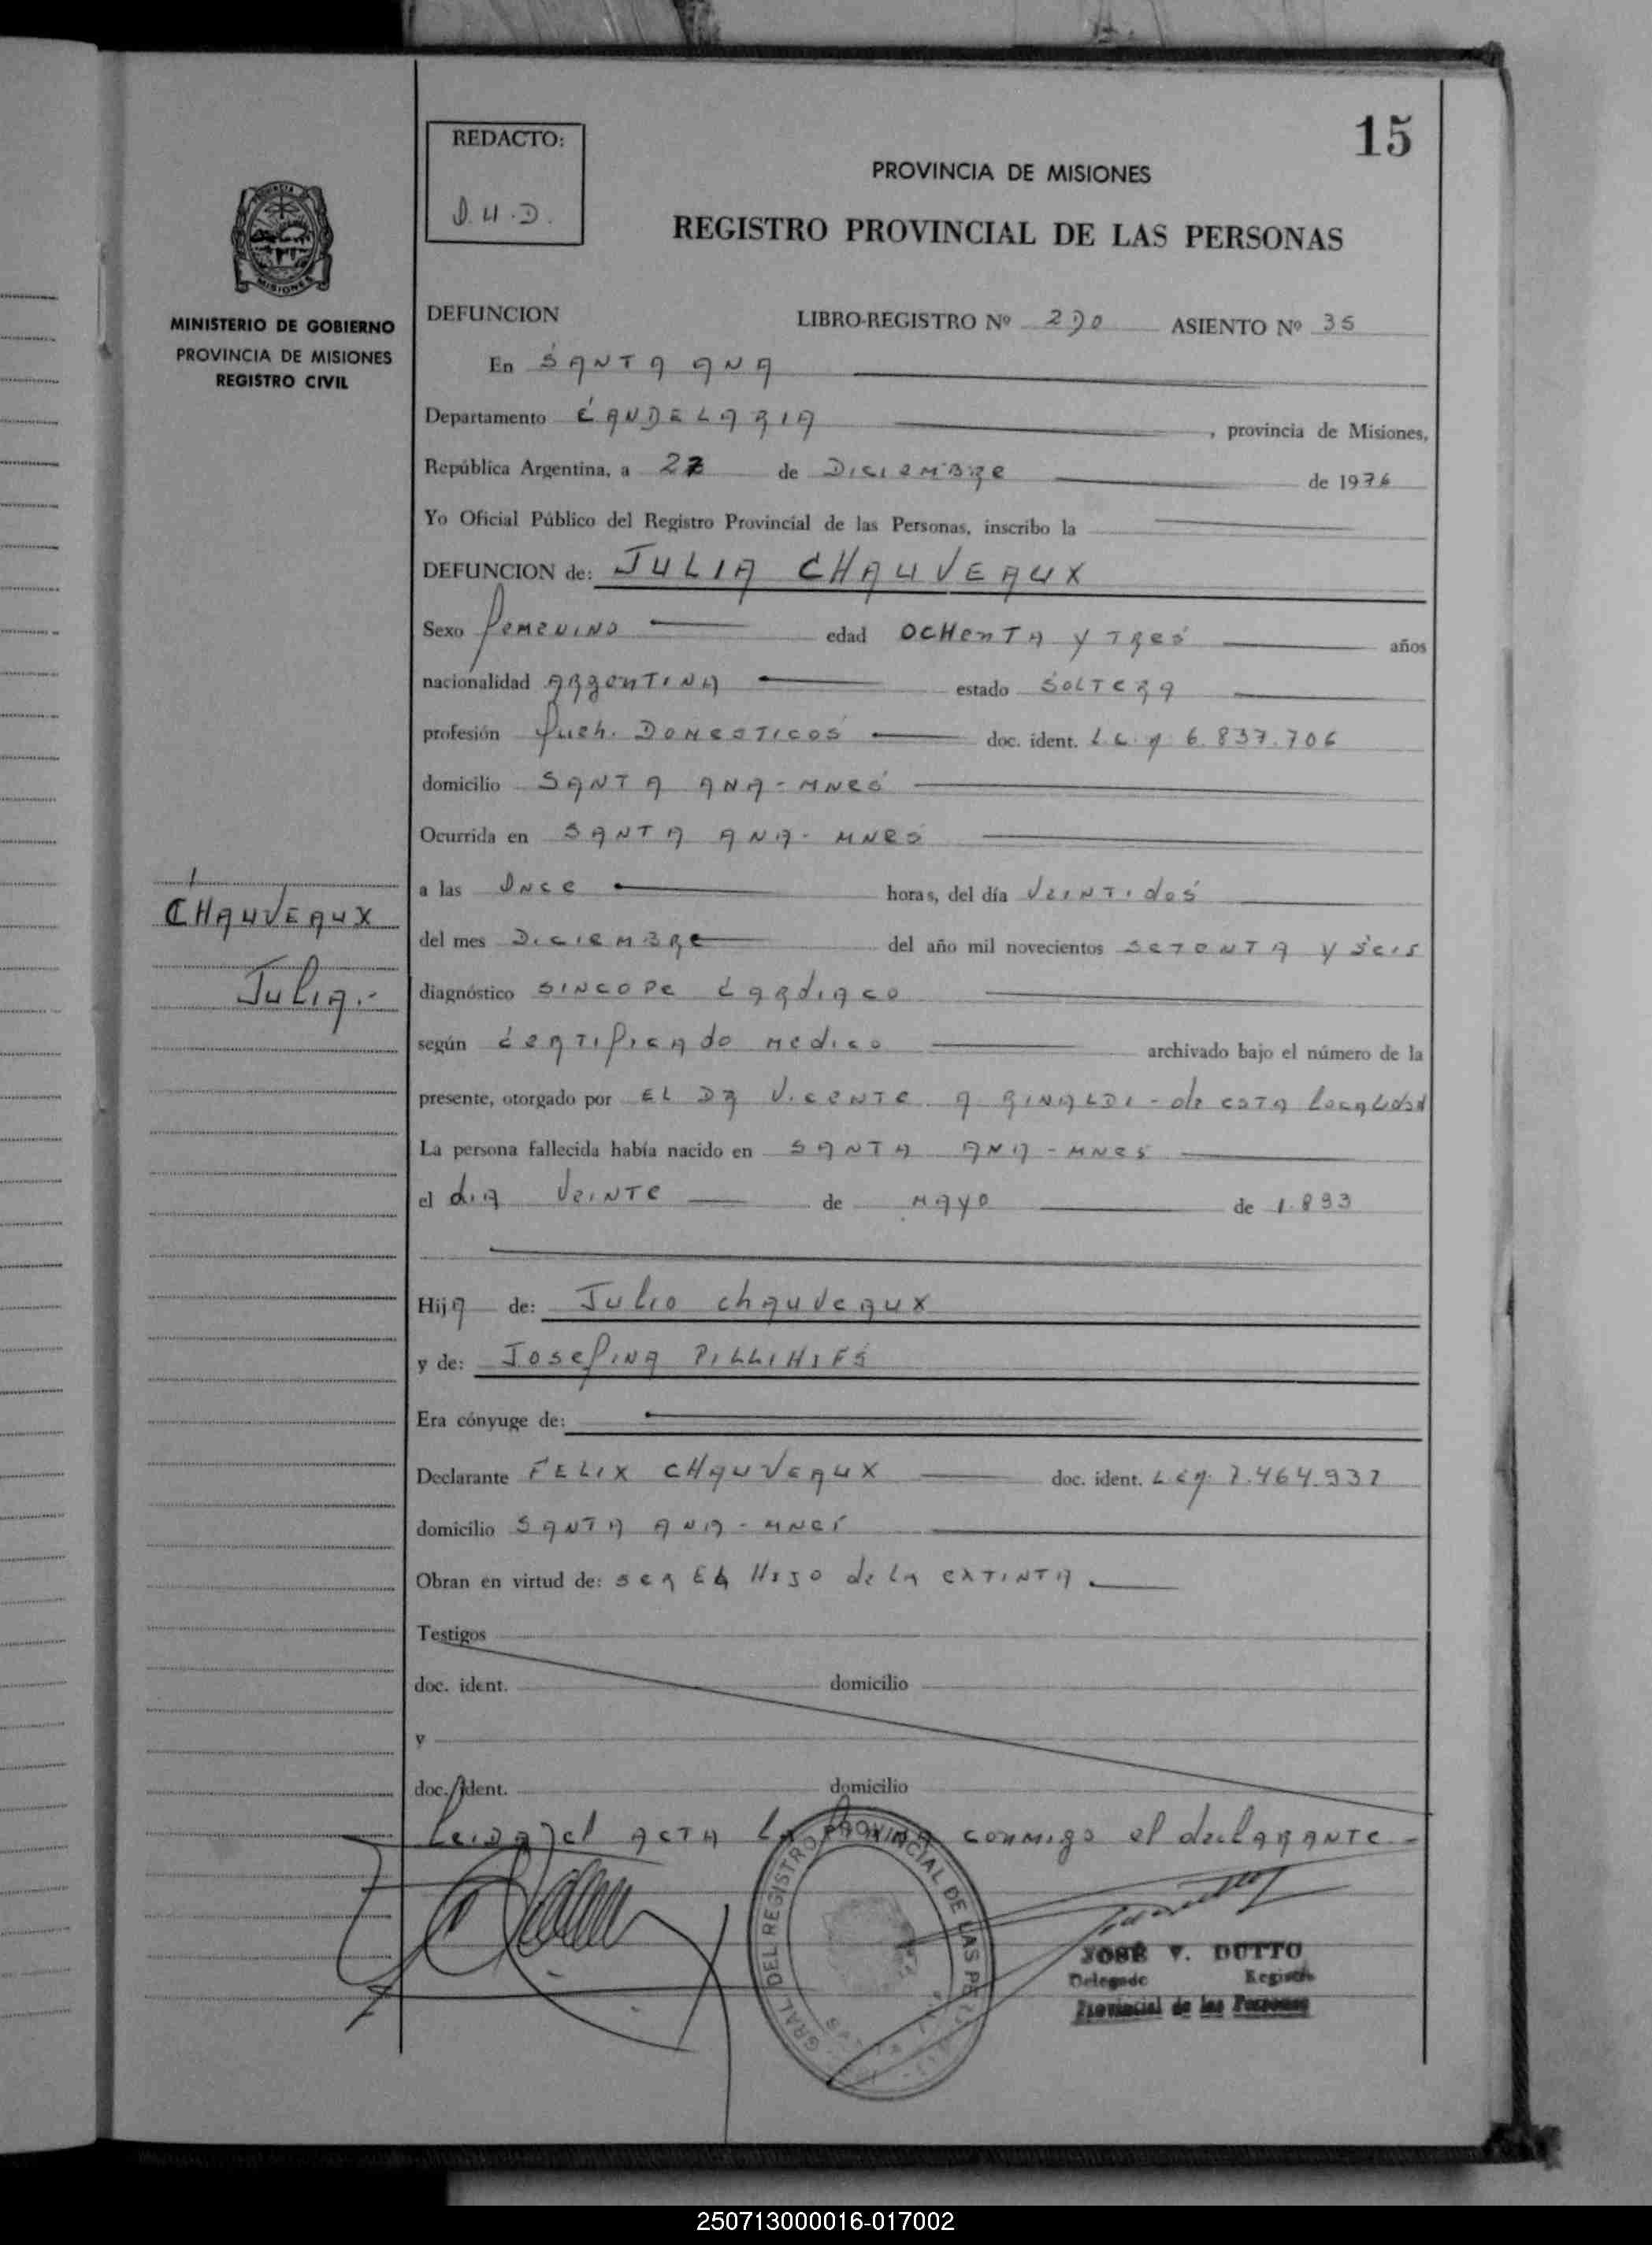 15
REDACTO:
PROVINCIA DE MISIONES
REGISTRO PROVINCIAL DE LAS PERSONAS
MISIONES
MINISTERIO DE GOBIERNO
PROVINCIA DE MISIONES
REGISTRO CIVIL
DEFUNCION LIBRO-REGISTRO Nº 290 ASIENTO Nº 35
En SANTA ANA
Departamento CANDELARIA , provincia de Misiones,
República Argentina, a de DICIEMBRE de 1976
Yo Oficial Público del Registro Provincial de las Personas, inscribo la
DEFUNCION de: JULIA CHAUVEAUX
Sexo femenino edad OCHENTA Y TRES años
nacionalidad ARGENTINA estado SOLTERA
profesión DOMESTICOS doc. ident. L.C. Nº 6.837.706
domicilio SANTA ANA - MNES
Ocurrida en SANTA ANA - MNES
a las ONCE horas, del día VEINTIDOS
del mes DICIEMBRE del año mil novecientos SETENTA Y SEIS
CHAUVEAUX
JULIA.-
diagnóstico SINCOPE CARDIACO
según certificado medico archivado bajo el número de la
presente, otorgado por EL DR VICENTE A RINALDI - de ESTA localidad
La persona fallecida había nacido en SANTA ANA - MNES
el dia VEINTE de MAYO de 1.893
Hija de: Julio Chauveaux
y de: Josefina
Era cónyuge de:
Declarante FELIX CHAUVEAUX doc. ident. 7.464.937
domicilio SANTA ANA - MNES
Obran en virtud de: SER EL HIJO de la EXTINTA.
Testigos
doc. ident. domicilio
y
doc. ident. domicilio
Leida el ACTA LA FIRMA CONMIGO el declarante -
GRAL DEL REGISTRO PROVINCIAL DE LAS
JOSE V. DUTTO
Delegado Registro
Provincial de las Personas
250713000016-017002